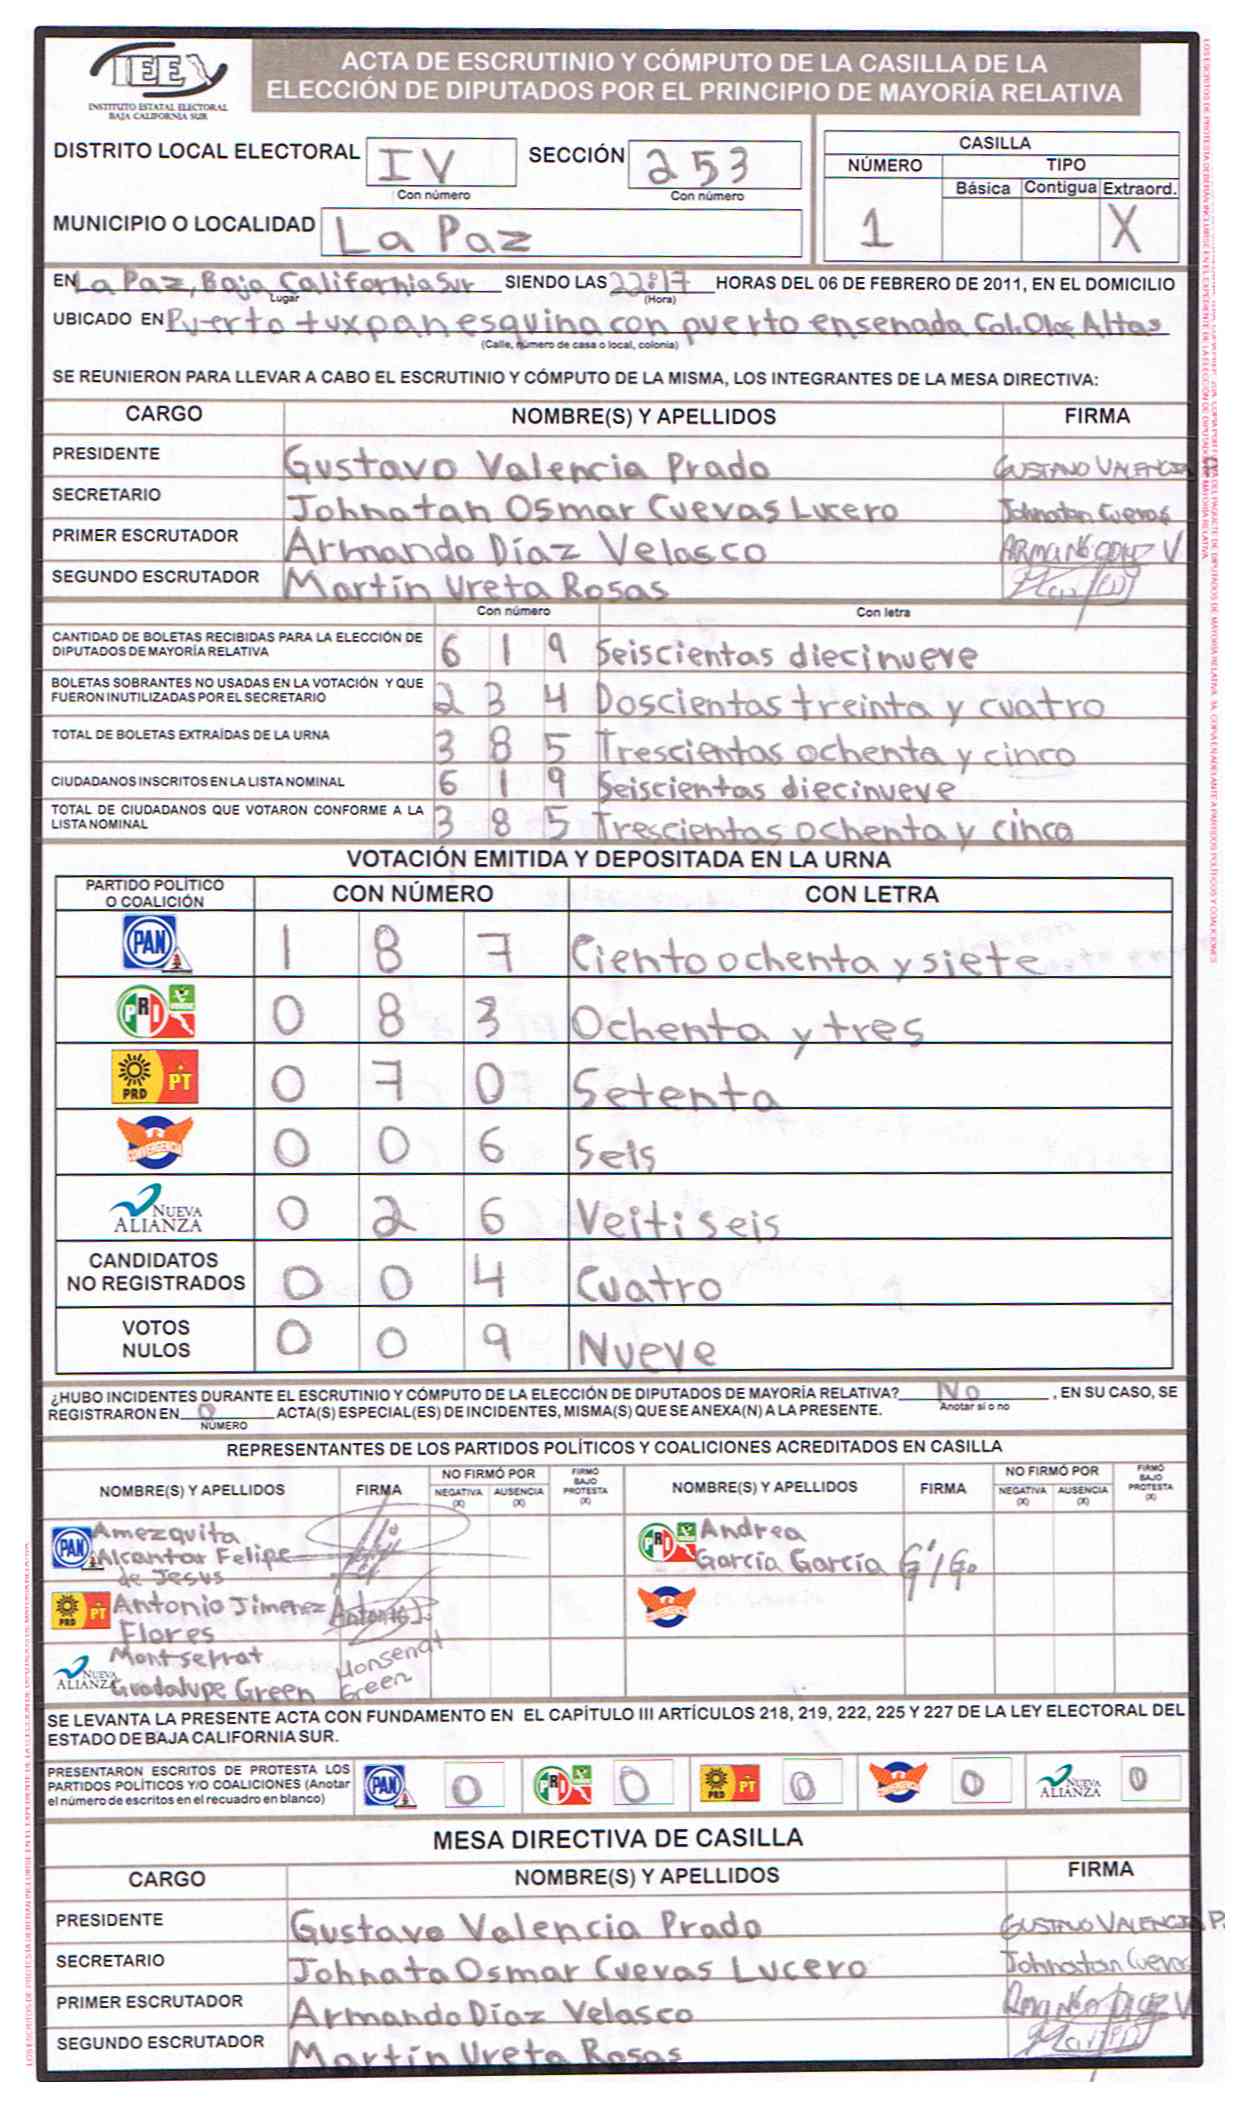 IEE
INSTITUTO ESTATAL ELECTORAL
BAJA CALIFORNIA SUR
ACTA DE ESCRUTINIO Y CÓMPUTO DE LA CASILLA DE LA
ELECCIÓN DE DIPUTADOS POR EL PRINCIPIO DE MAYORÍA RELATIVA
DISTRITO LOCAL ELECTORAL IV SECCIÓN 253
Con número Con número
MUNICIPIO O LOCALIDAD La Paz
CASILLA
NÚMERO TIPO
Básica Contigua Extraord.
1 X
EN La Paz, Baja California Sur SIENDO LAS 22:17 HORAS DEL 06 DE FEBRERO DE 2011, EN EL DOMICILIO
Lugar (Hora)
UBICADO EN Puerto tuxpan esquina con puerto ensenada Col. Olas Altas
(Calle, número de casa o local, colonia)
SE REUNIERON PARA LLEVAR A CABO EL ESCRUTINIO Y CÓMPUTO DE LA MISMA, LOS INTEGRANTES DE LA MESA DIRECTIVA:
CARGO NOMBRE(S) Y APELLIDOS FIRMA
PRESIDENTE Gustavo Valencia Prado GUSTAVO VALENCIA P.
SECRETARIO Johnatan Osmar Cuevas Lucero Johnatan Cuevas
PRIMER ESCRUTADOR Armando Díaz Velasco
SEGUNDO ESCRUTADOR Martín Ureta Rosas
Con número Con letra
CANTIDAD DE BOLETAS RECIBIDAS PARA LA ELECCIÓN DE
DIPUTADOS DE MAYORÍA RELATIVA 6 1 9 Seiscientas diecinueve
BOLETAS SOBRANTES NO USADAS EN LA VOTACIÓN Y QUE
FUERON INUTILIZADAS POR EL SECRETARIO 2 3 4 Doscientas treinta y cuatro
TOTAL DE BOLETAS EXTRAÍDAS DE LA URNA 3 8 5 Trescientas ochenta y cinco
CIUDADANOS INSCRITOS EN LA LISTA NOMINAL 6 1 9 Seiscientas diecinueve
TOTAL DE CIUDADANOS QUE VOTARON CONFORME A LA
LISTA NOMINAL 3 8 5 Trescientas ochenta y cinco
VOTACIÓN EMITIDA Y DEPOSITADA EN LA URNA
PARTIDO POLÍTICO
O COALICIÓN CON NÚMERO CON LETRA
PAN 1 8 7 Ciento ochenta y siete
PRI 0 8 3 Ochenta y tres
PRD PT 0 7 0 Setenta
CONVERGENCIA 0 0 6 Seis
NUEVA ALIANZA 0 2 6 Veitiseis
CANDIDATOS
NO REGISTRADOS 0 0 4 Cuatro
VOTOS
NULOS 0 0 9 Nueve
¿HUBO INCIDENTES DURANTE EL ESCRUTINIO Y CÓMPUTO DE LA ELECCIÓN DE DIPUTADOS DE MAYORÍA RELATIVA? No, EN SU CASO, SE
Anotar si o no
REGISTRARON EN 0 ACTA(S) ESPECIAL(ES) DE INCIDENTES, MISMA(S) QUE SE ANEXA(N) A LA PRESENTE.
NÚMERO
REPRESENTANTES DE LOS PARTIDOS POLÍTICOS Y COALICIONES ACREDITADOS EN CASILLA
NOMBRE(S) Y APELLIDOS FIRMA NO FIRMÓ POR NEGATIVA (X) AUSENCIA (X) FIRMÓ BAJO PROTESTA (X)
NOMBRE(S) Y APELLIDOS FIRMA NO FIRMÓ POR NEGATIVA (X) AUSENCIA (X) FIRMÓ BAJO PROTESTA (X)
PAN Amezquita
Alcantar Felipe
de Jesus
PRI Andrea
García García
PRD PT Antonio Jimenez
Flores
CONVERGENCIA
NUEVA ALIANZA Montserrat
Guadalupe Green
Monserrat
Green
SE LEVANTA LA PRESENTE ACTA CON FUNDAMENTO EN EL CAPÍTULO III ARTÍCULOS 218, 219, 222, 225 Y 227 DE LA LEY ELECTORAL DEL
ESTADO DE BAJA CALIFORNIA SUR.
PRESENTARON ESCRITOS DE PROTESTA LOS
PARTIDOS POLÍTICOS Y/O COALICIONES (Anotar
el número de escritos en el recuadro en blanco)
PAN 0 PRI 0 PRD PT 0 CONVERGENCIA 0 NUEVA ALIANZA 0
MESA DIRECTIVA DE CASILLA
CARGO NOMBRE(S) Y APELLIDOS FIRMA
PRESIDENTE Gustavo Valencia Prado GUSTAVO VALENCIA P.
SECRETARIO Johnata Osmar Cuevas Lucero Johnatan Cuevas
PRIMER ESCRUTADOR Armando Díaz Velasco
SEGUNDO ESCRUTADOR Martín Ureta Rosas